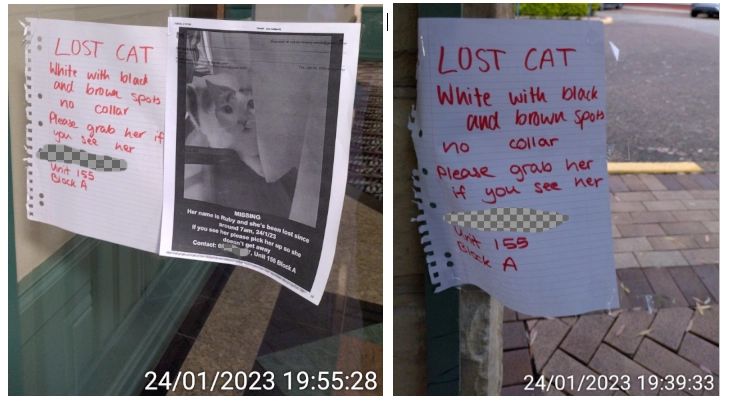 LOST CAT
White with black
and brown spots
no collar
Please grab her if
you see her
Unit 155
Block A
MISSING
Her name is Ruby and she's been lost since
around 7am, 24/1/23
If you see her please pick her up so she
doesn't get away
Contact: Unit 155 Block A
24/01/2023 19:55:28
LOST CAT
White with black
and brown spots
no collar
Please grab her
if you see her
Unit 155
Block A
24/01/2023 19:39:33